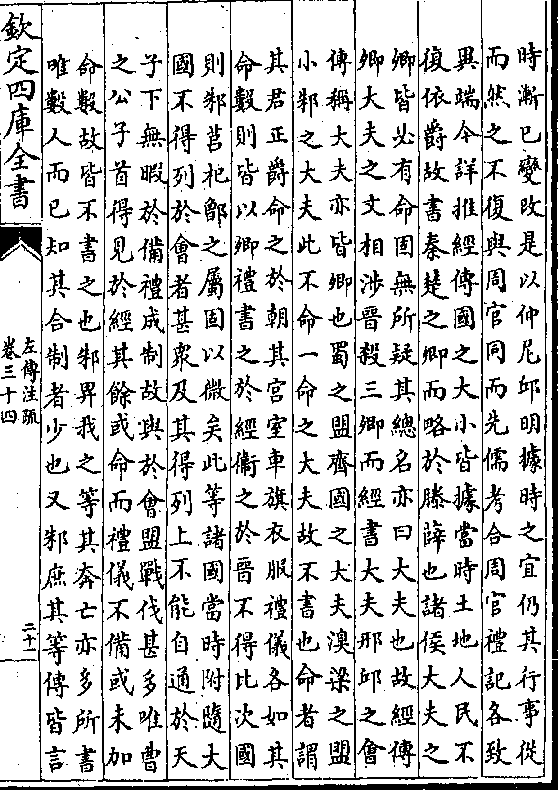 時漸已變改是以仲尼邱明據時之宜仍其行事從
而然之不復與周官同而先儒考合周官禮記各致
異端今詳推經傳國之大小皆據當時土地人民不
復依爵故書秦楚之卿而略於滕薛也諸侯大夫之
卿皆必有命固無所疑其總名亦曰大夫也故經傳
卿大夫之文相涉晉殺三卿而經書大夫邢邱之會
傳稱大夫亦皆卿也蜀之盟齊國之大夫溴梁之盟
小邾之大夫此不命一命之大夫故不書也命者謂
其君正爵命之於朝其宮室車旗衣服禮儀各如其
命數則皆以卿禮書之於經衛之於晉不得比次國
則邾莒杞鄫之屬固以微矣此等諸國當時附隨大
國不得列於會者甚衆及其得列上不能自通於天
子下無暇於備禮成制故與於會盟戰伐甚多唯曹
之公子首得見於經其餘或命而禮儀不備或未加
命數故皆不書之也邾畀我之等其奔亡亦多所書
唯數人而已知其合制者少也又邾庶其等傳皆言
欽定四庫全書
左傳注疏
卷三十四
二十一